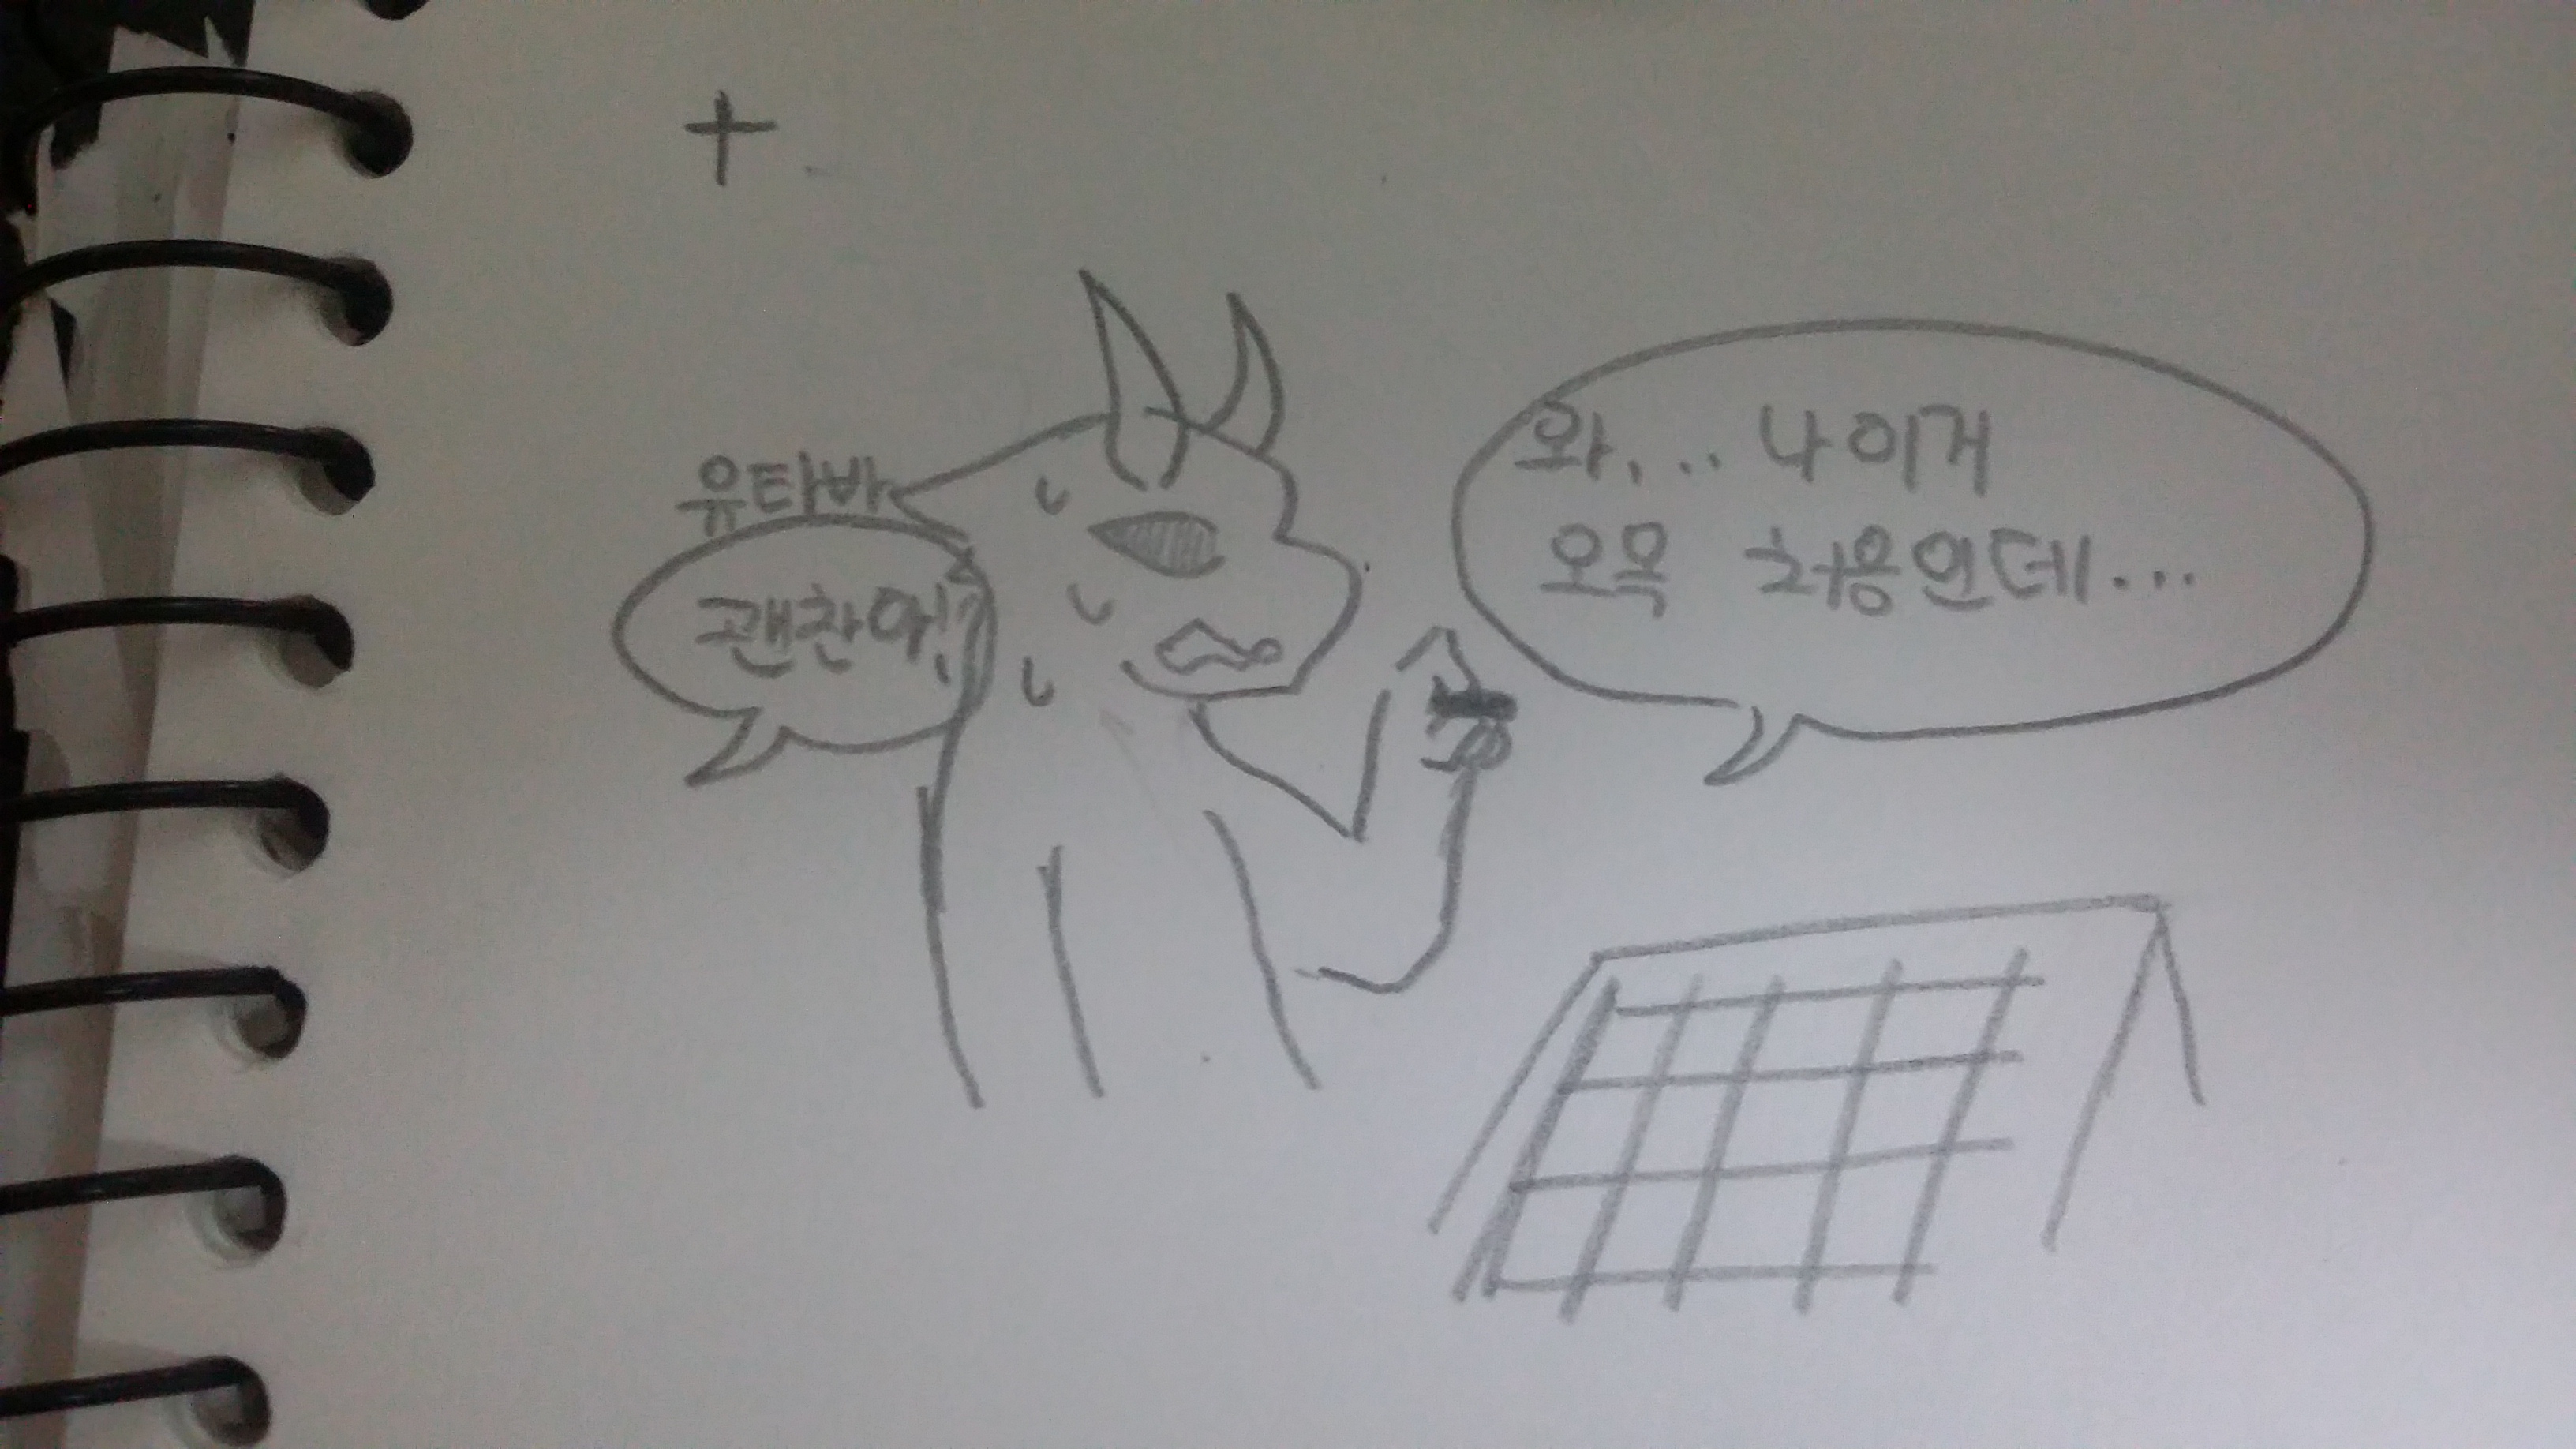 +
유타바
괜찮아!
와... 나 이거
오목 처음인데...